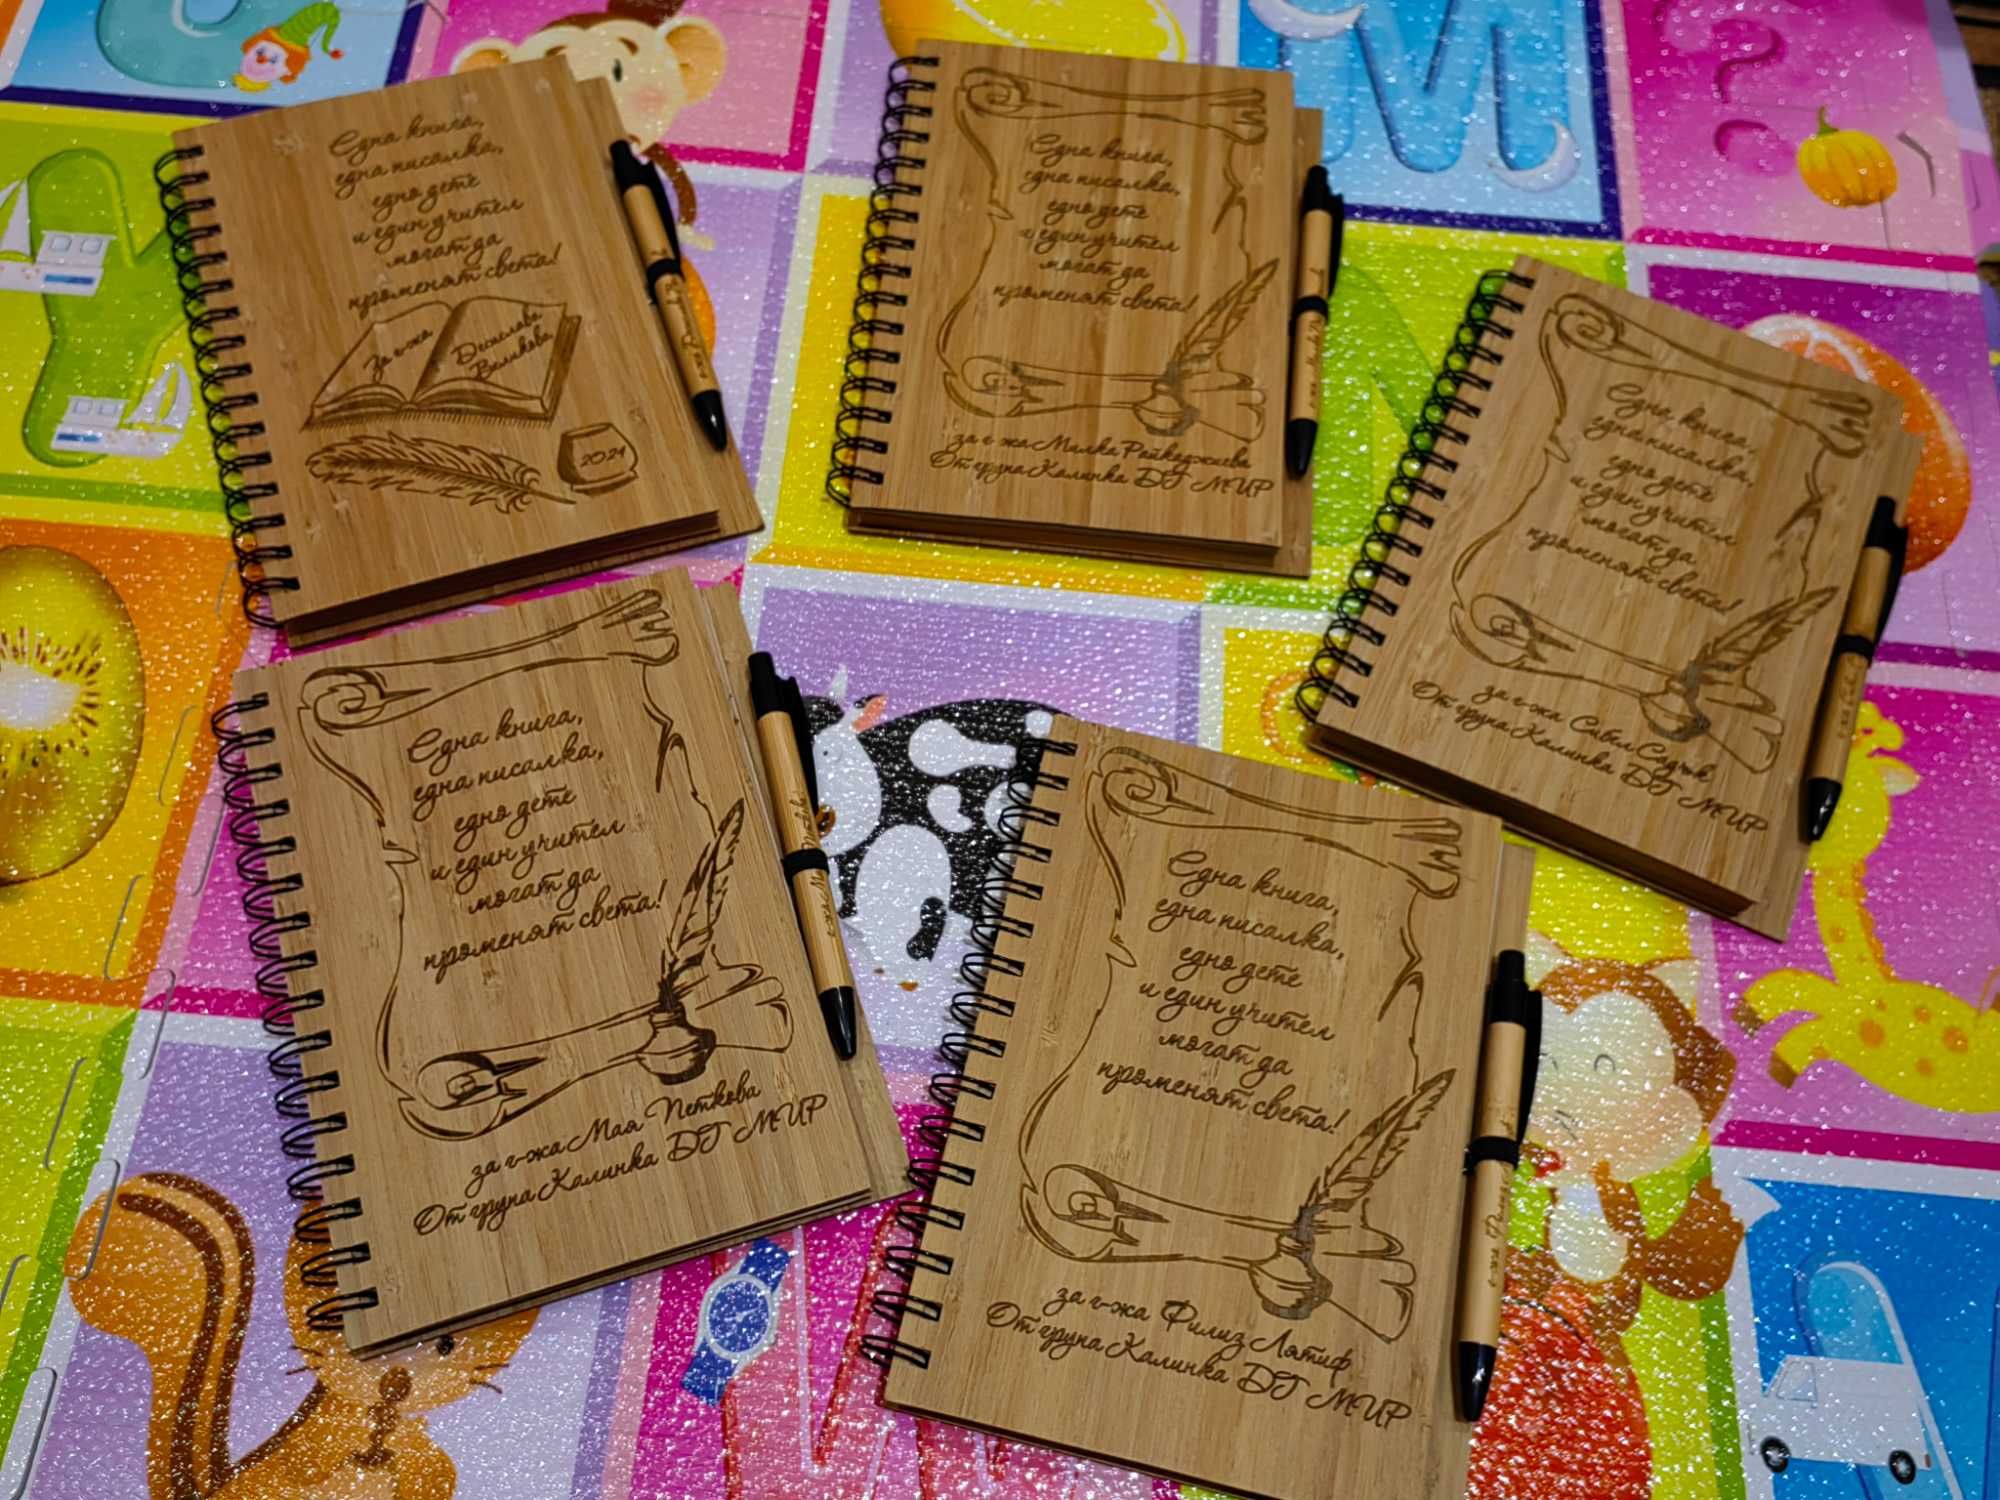 Една книга,
една писалка,
едно дете
и един учител
могат да
променят света!
За г-жа
Десислава
Великова
2021
Една книга,
една писалка,
едно дете
и един учител
могат да
променят света!
за г-жа Милка Райкаджиева
От група Калинка ДГ МИР
Една книга,
една писалка,
едно дете
и един учител
могат да
променят света!
за г-жа Сибел Садък
От група Калинка ДГ МИР
Една книга,
една писалка,
едно дете
и един учител
могат да
променят света!
за г-жа Мая Петкова
От група Калинка ДГ МИР
г-жа
Една книга,
една писалка,
едно дете
и един учител
могат да
променят света!
за г-жа Филиз Лятиф
От група Калинка ДГ МИР
г-жа